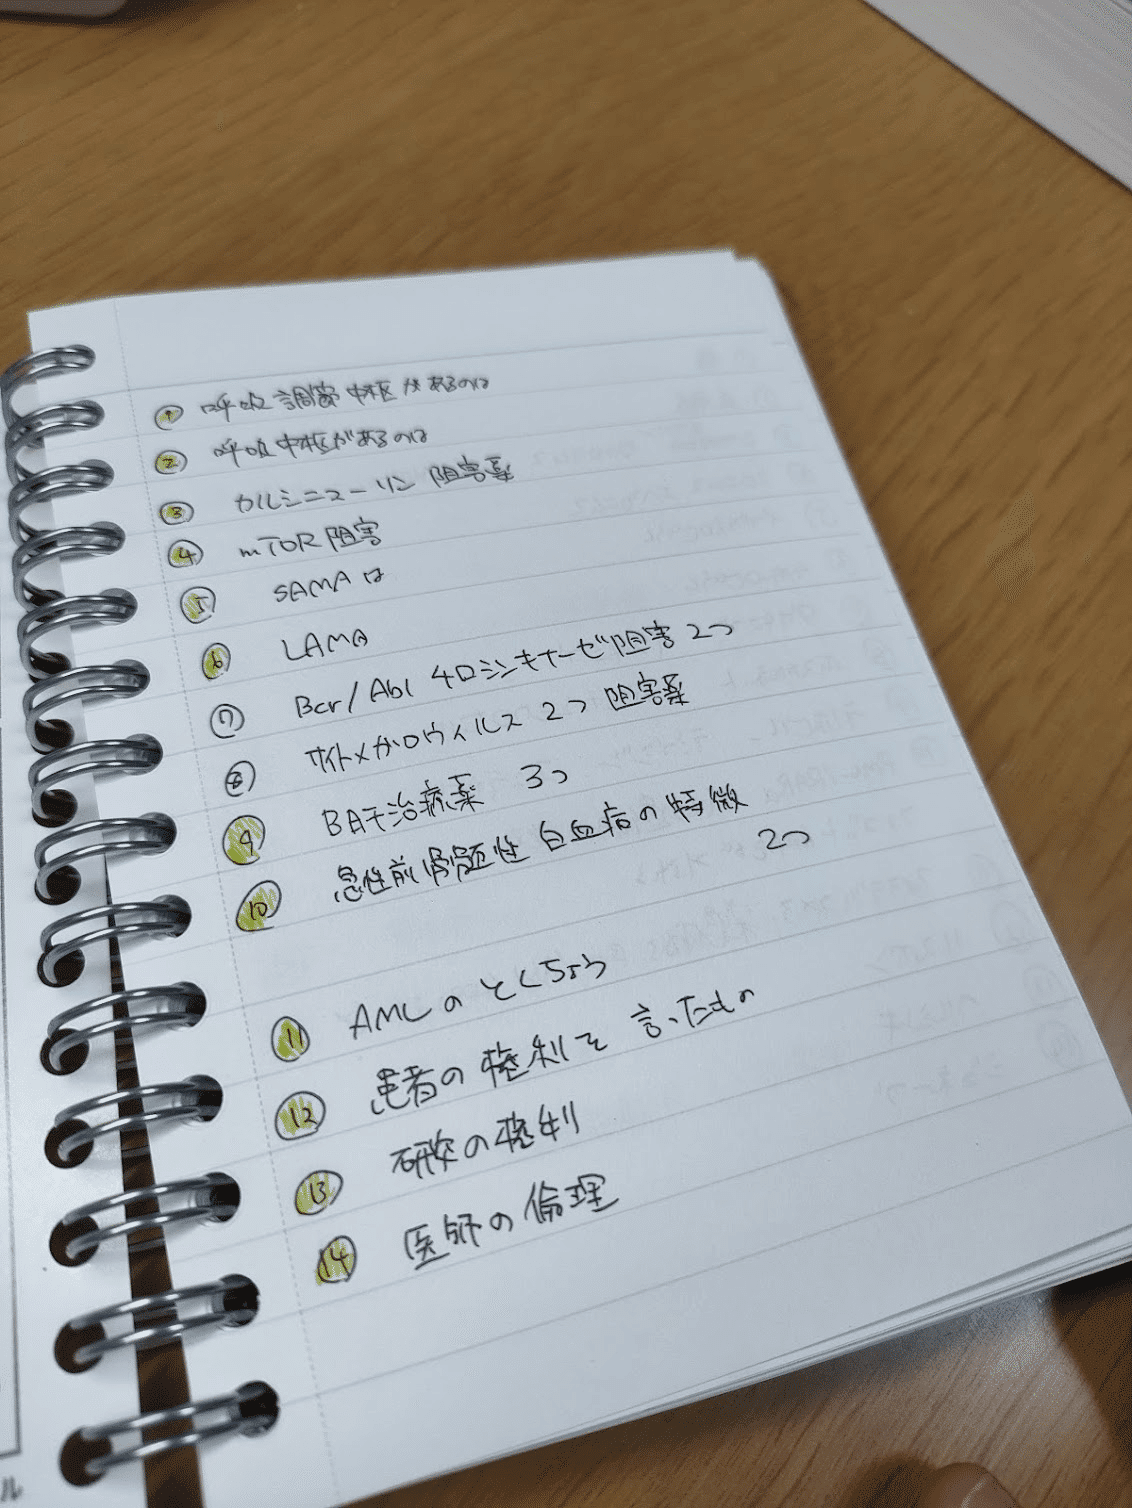 ① 呼吸調節中枢があるのは
② 呼吸中枢があるのは
③ カルシニューリン阻害薬
④ mTOR阻害
⑤ SAMAは
⑥ LAMA
⑦ Bcr/Abl チロシンキナーゼ阻害 2つ
⑧ サイトメガロウィルス 2つ 阻害薬
⑨ BA干治病薬 3つ
⑩ 急性前骨髄性白血病の特徴
2つ
⑪ AMLのとくちょう
⑫ 患者の権利を言ったもの
⑬ 研究の権利
⑭ 医師の倫理